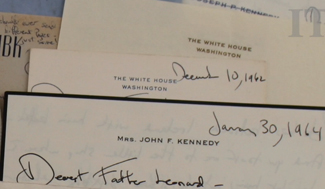 JOSEPH P. KENNEDY
THE WHITE HOUSE
WASHINGTON
THE WHITE HOUSE
WASHINGTON
December 10, 1962
January 30, 1964
MRS. JOHN F. KENNEDY
Dearest Father Leonard –